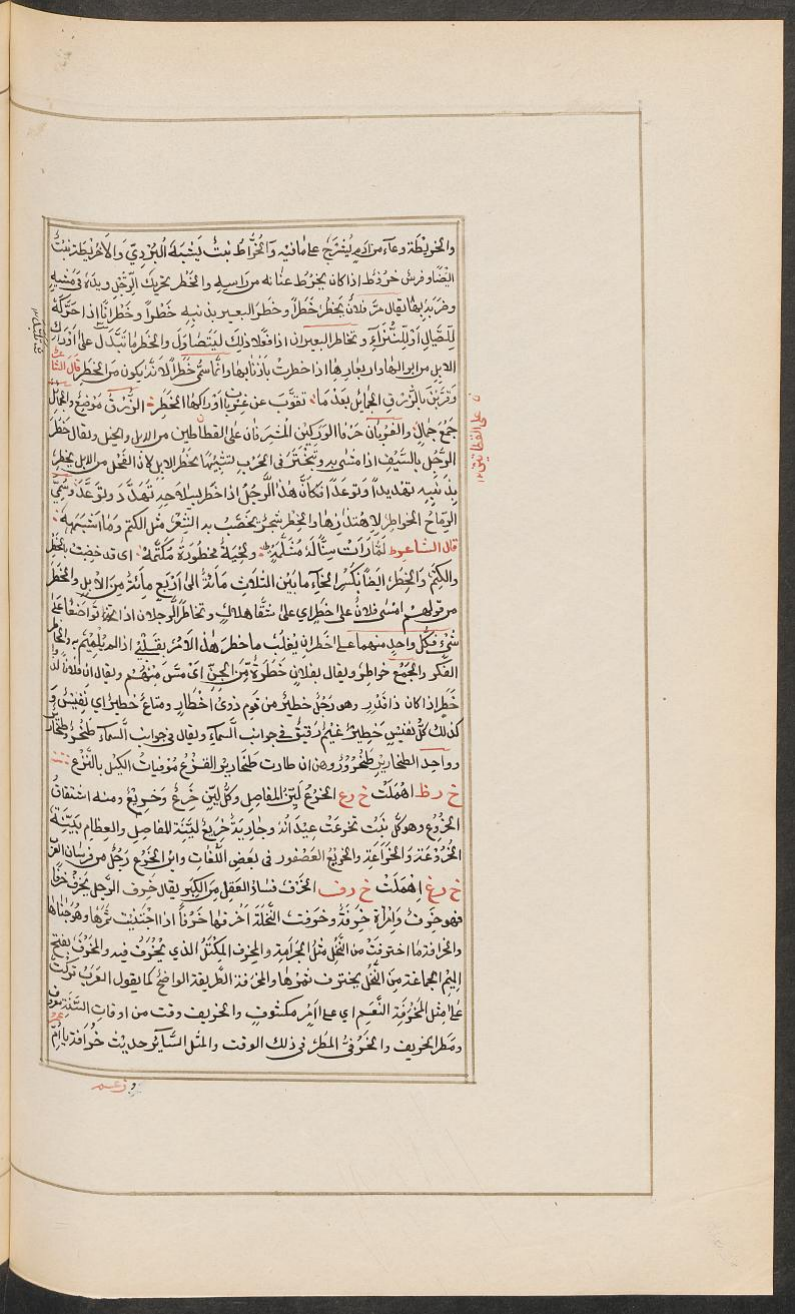 والخريطة وعاء من ادم يشرج على ما فيه والخراط نبت يشبه البردي والاخريطة نبت
ايضا وفرس خروط اذا كان يخرط عنانه من راسه والخطر تحريك الرجل ويده في مشيه
وضربه بها يقال مر فلان يخطر خطرا وخطر البعير بذنبه خطرا وخطرانا اذا حركه
للصيال او للنشاط وتخاطر البعيران اذا فعلا ذلك ليتصاولا والخطر ما تبدل على اوراك
الابل من ابوالها وابعارها اذا خطرت باذنابها وانما سمي خطرا لانه يكون من الخطر قال الشاعر
وقربن بالزرق الجمائل بعد ما تقوب عن غربان اوراكها الخطر الزرق موضع والجمائل
جمع جمال والغرابان حرفا الوركين المشرفان على القطاطين من الابل والخيل ويقال خطر
الرجل بالسيف اذا مشى به وتبختر في الحرب تشبيها بخطر الابل لان الفحل من الابل يخطر
بذنبه تهديدا وتوعدا فكان هذا الرجل اذا خطر بسلاحه تهدد وتوعد وسمي
الرماح الخواطر لاهتزازها والخطر شجر يخضب به الشعر مثل الكتم وما اشبهه
قال الشاعر لما رات مثلمة ولحية مخطورة مكتمة اي قد خضبت بالخطر
والكتم والخطر ايضا بكسر الخاء ما بين الثلاث مائة الى اربع مائة من الابل والخطر
من قولهم امسى فلان على خطر اي على شفا هلاك وتخاطر الرجلان اذا تواضعا على
شيء فكل واحد منهما على خطر ان يغلب ما خطر هذا الامر بقلبي اذا لم يلهم به والخاطر
الفكر والجمع خواطر ويقال بفلان خطرة من الجن اي مس منهم ويقال ان فلانا لذو
خطر اذا كان ذا قدر وهو رجل خطير من قوم ذوي اخطار ومتاع خطير اي نفيس و
كذلك كل نفيس خطير غيم رقيق في جوانب السماء ويقال في جوانب السماء طخرور وطخارير
وواحد الطخارير طخرور ان طارت طخارير القزع موفيات الكيل بالنزع
خ ر ظ اهملت خ ر ع الخرع لين المفاصل وكل لين خرع وخريع ومنه اشتقاق
الخروع وهو كل نبت تخرعت عيدانه وجارية خريع لينة المفاصل والعظام بينة
الخروعة والخراعة والخريع العصفور في بعض اللغات وابن الخرع رجل من فرسان العرب
خ ر غ اهملت خ ر ف الخرف فساد العقل من الكبر يقال خرف الرجل يخرف خرفا
فهو خرف وامراة خرفة وخرفت النخلة اخرفها خرفا اذا اجتنيت ثمرها وهو جناها
والخرافة ما اخترفت من النخل مثل الجرامة والمخرف المكتل الذي يخترف فيه والمخرف بفتح
الميم الجماعة من النخل يخترف ثمرها والمخرفة الطريقة الواضح كما يقول العرب تركت
على مثل المخرفة النعم اي على امر مكشوف والخريف وقت من اوقات السنة معروف
ومطر الخريف والخرفي المطر في ذلك الوقت والمثل السائر حديث خرافة يا ام
وزعم
على القطاتين